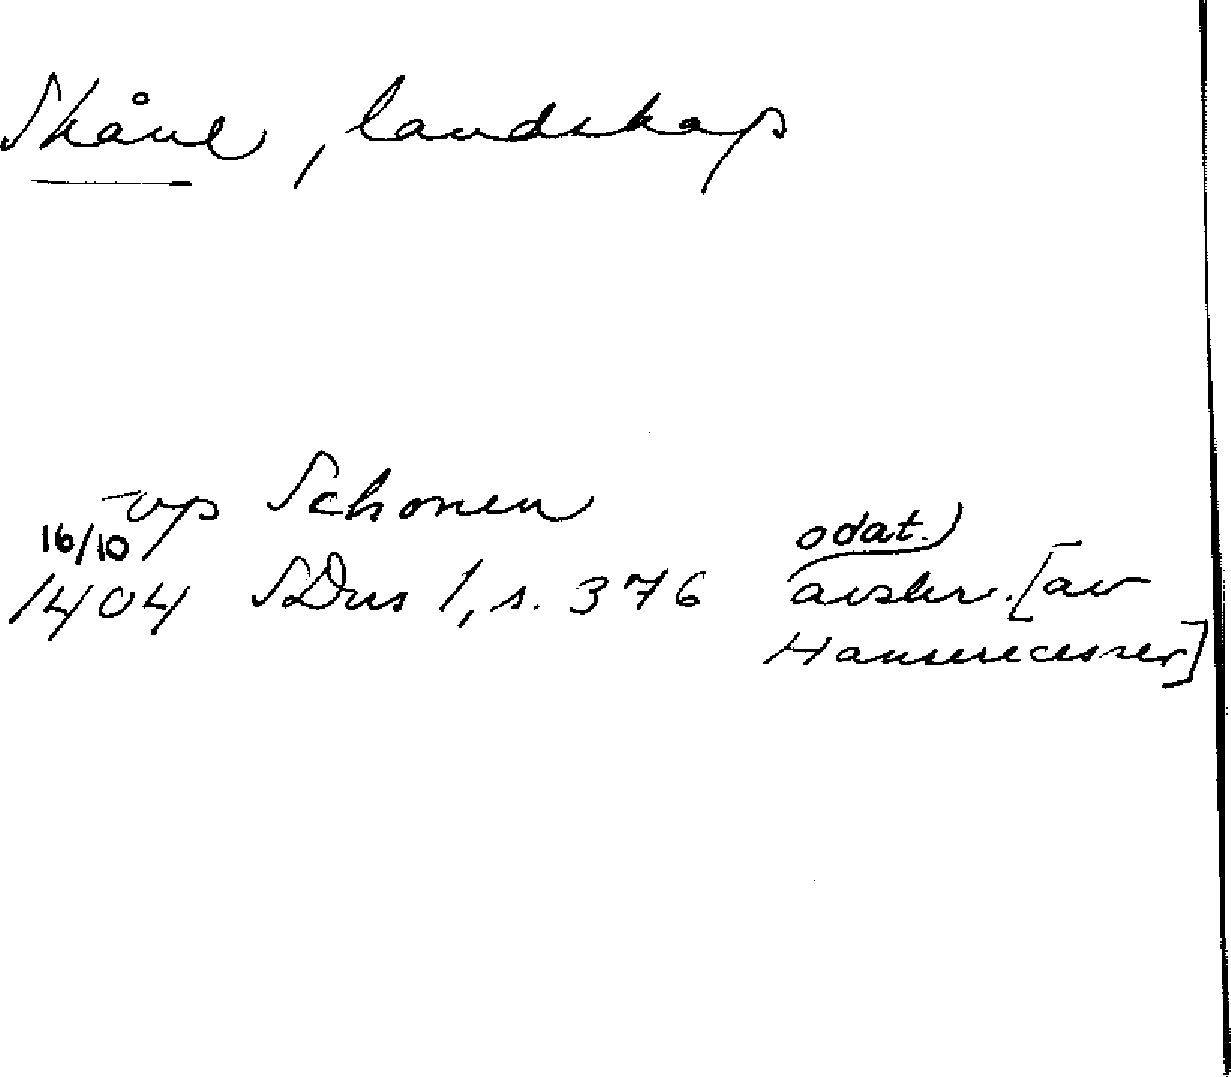 Skåne, landskap
vp Schonen
16/10 odat.)
1404 SDns 1, s. 376 avskr. [av
Hanserecesser]